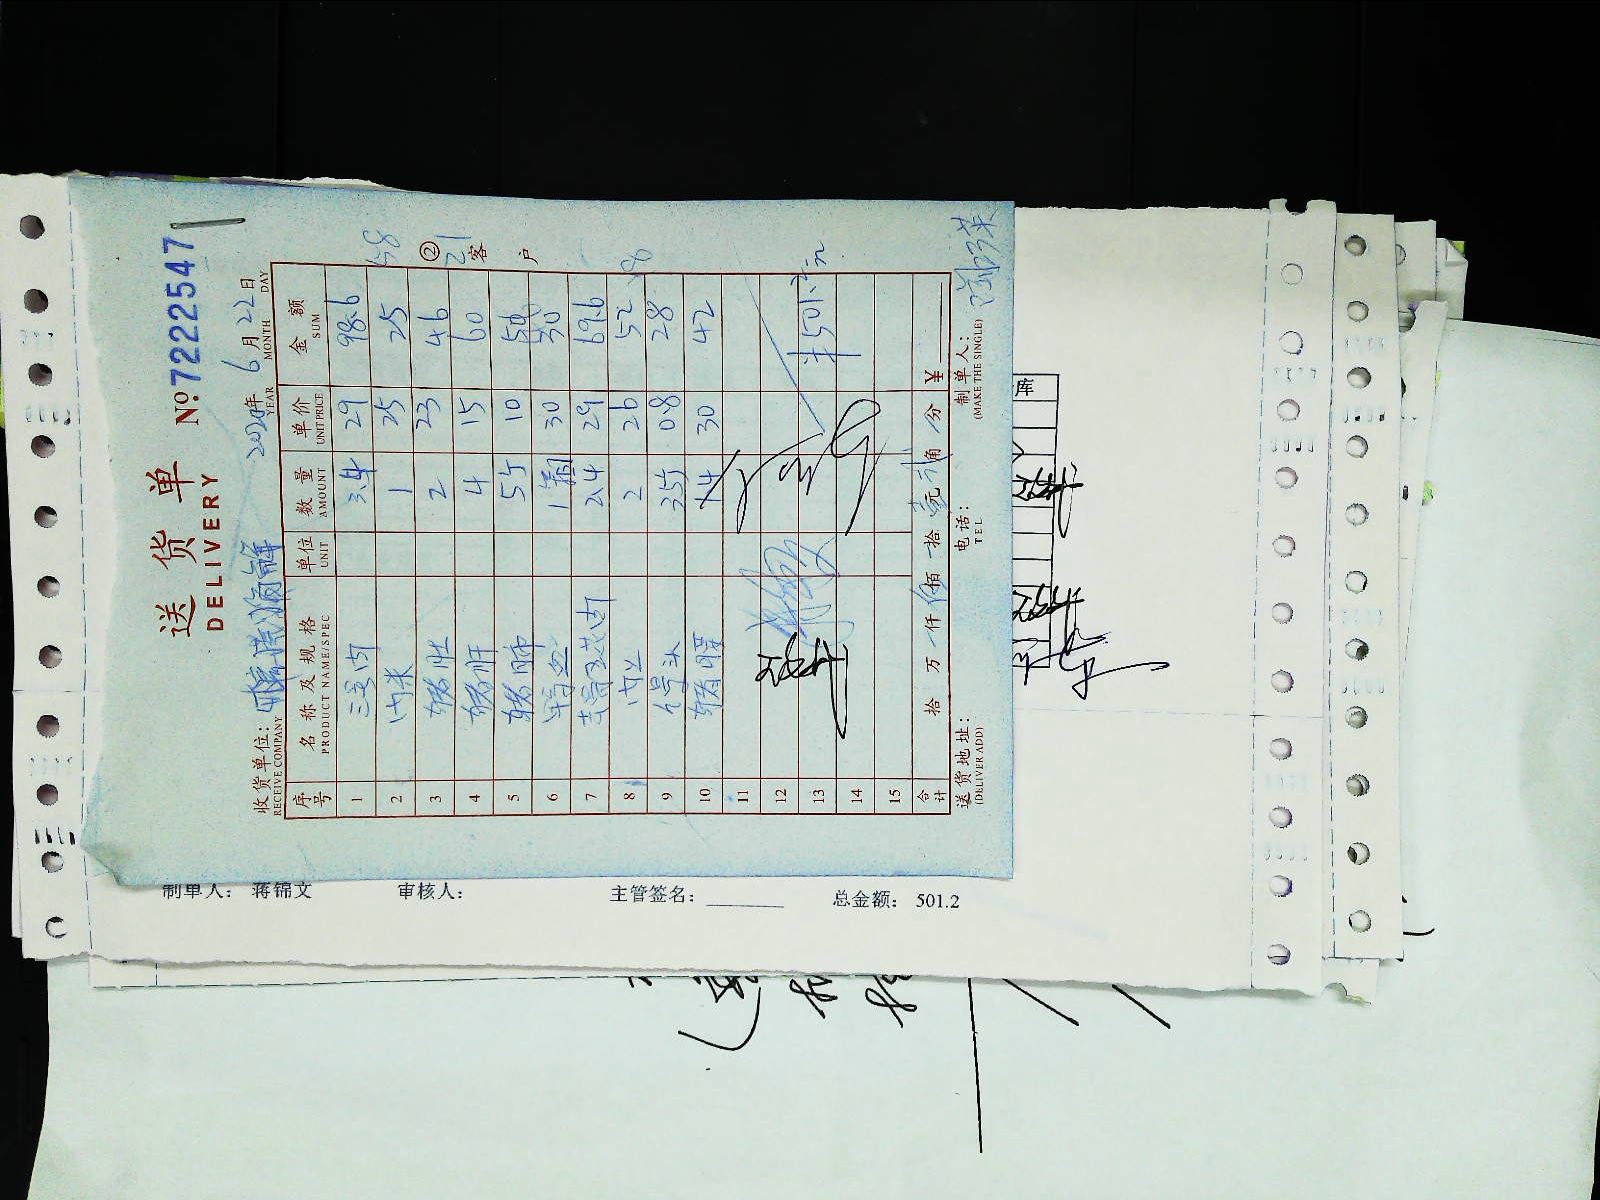 送货单 №7222547
DELIVERY
2020年 6月22日
YEAR MONTH DAY
收货单位:
RECEIVE COMPANY
序号 名称及规格 单位 数量 单价 金额
PRODUCT NAME/SPEC UNIT AMOUNT UNIT PRICE SUM
1 29 98.6
2 肉米 1 25 25
3 猪肚 2 23 46
4 猪肝 4 15 60
5 猪肺 5斤 10 50
6 1 30 30
7 2.4 29 69.6
8 2 26 52
9 号头 35 0.8 28
10 猪腰 1.4 30 42
11
12
13 ¥501.2元
14
15
合计 拾 万 仟 佰 拾 元 角 分 ¥
送货地址: 电话: 制单人:
(DELIVER ADD) TEL (MAKE THE SINGLE)
②客户
库
制单人: 蒋锦文 审核人: 主管签名: 总金额: 501.2